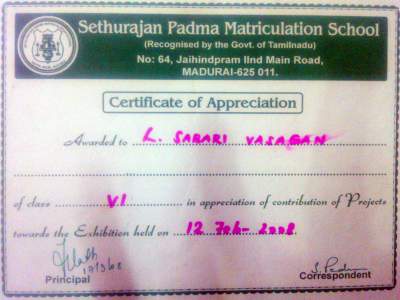 Sethurajan Padma Matriculation School
(Recognised by the Govt. of Tamilnadu)
No: 64, Jaihindpram IInd Main Road,
MADURAI-625 011.
Certificate of Appreciation
Awarded to L. SABARI VASAGAN
of class VI in appreciation of contribution of Projects
towards the Exhibition held on 12 Feb- 2008
Principal
S. Padma
Correspondent